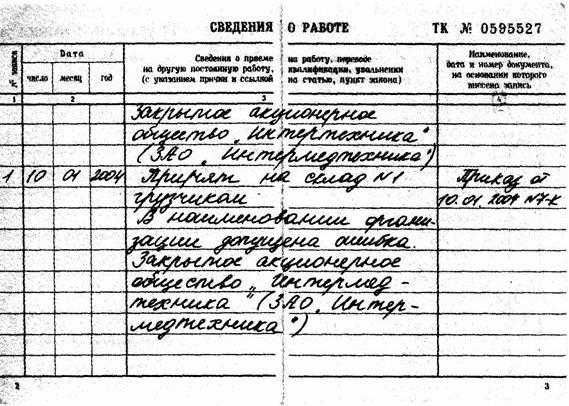 СВЕДЕНИЯ О РАБОТЕ ТК № 0595527
№ записи
Дата
число месяц год
Сведения о приеме на работу, переводе
на другую постоянную работу, квалификации, увольнении
(с указанием причин и ссылкой на статью, пункт закона)
Наименование,
дата и номер документа,
на основании которого
внесена запись
1 2 3 4
Закрытое акционерное
общество „Интертехника“
(ЗАО „Интермедтехника“)
1 10 01 2004 Принят на склад №1 Приказ от
грузчиком 10.01.2004 №7-К
В наименовании органи-
зации допущена ошибка.
Закрытое акционерное
общество „Интермед-
техника“ (ЗАО „Интер-
медтехника“)
2 3